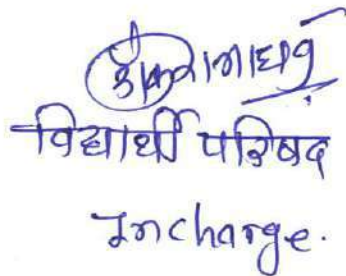 विद्यार्थी परिषद
Incharge.